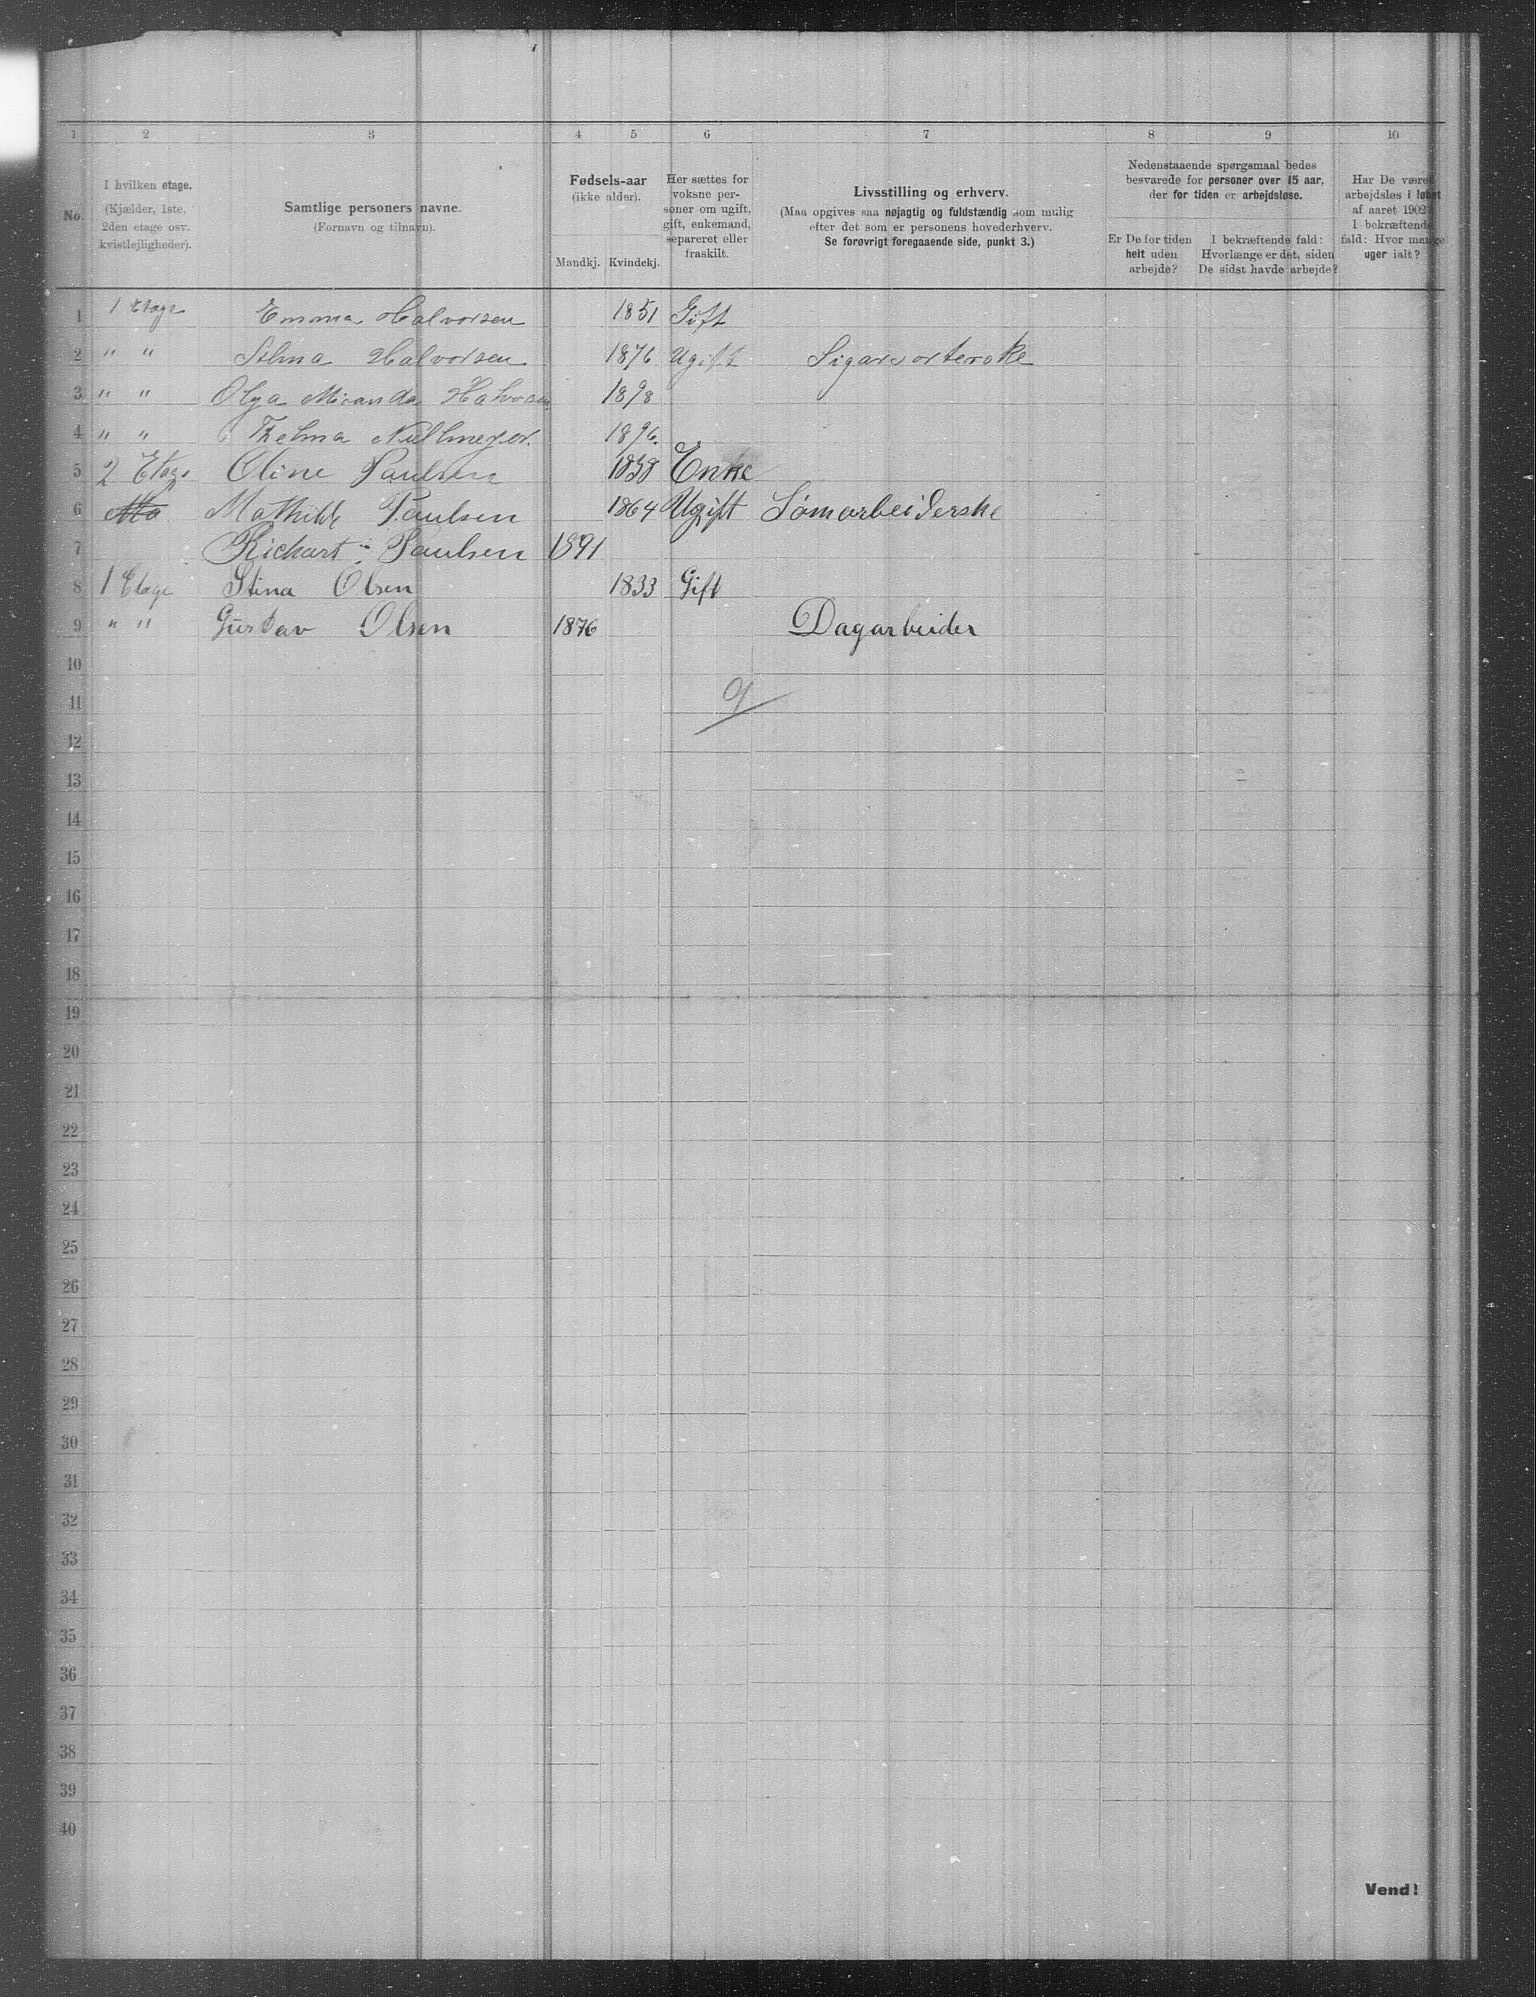 1 2 3 4 5 6 7 8 9 10
No.
I hvilken etage.
(Kjælder, 1ste.
2den etage osv.
kvistlejligheder).
Samtlige personers navne.
(Fornavn og tilnavn).
Fødsels-aar
(ikke alder).
Mandkj. Kvindekj.
Her sættes for
voksne per-
soner om ugift,
gift, enkemand,
separeret eller
fraskilt.
Livsstilling og erhverv.
(Maa opgives saa nøjagtig og fuldstændig som mulig
efter det som er personens hovederhverv.
Se forøvrigt foregaaende side, punkt 3.)
Nedenstaaende spørgsmaal bedes
besvarede for personer over 15 aar,
der for tiden er arbejdsløse.
Er De for tiden
helt uden
arbejde?
I bekræftende fald:
Hvorlænge er det, siden
De sidst havde arbejde?
Har De været
arbejdsløs i løbet
af aaret 1902?
I bekræftende
fald: Hvor mange
uger ialt?
1 1 Etage Emma Halvorsen 1851 Gift
2 " " Selma Halvorsen 1876 Ugift Sigarsorterske
3 " " Olga Miranda Halvorsen 1898
4 " " Thelma Nullmeyer. 1896.
5 2 Etage Oline Paulsen 1838 Enke
6 Mathilde Paulsen 1864 Ugift Sømarbeiderske
7 Richart Paulsen 1891
8 1 Etage Stina Olsen 1833 Gift
9 " " Gustav Olsen 1876 Dagarbeider
10
11 9
12
13
14
15
16
17
18
19
20
21
22
23
24
25
26
27
28
29
30
31
32
33
34
35
36
37
38
39
40
Vend!